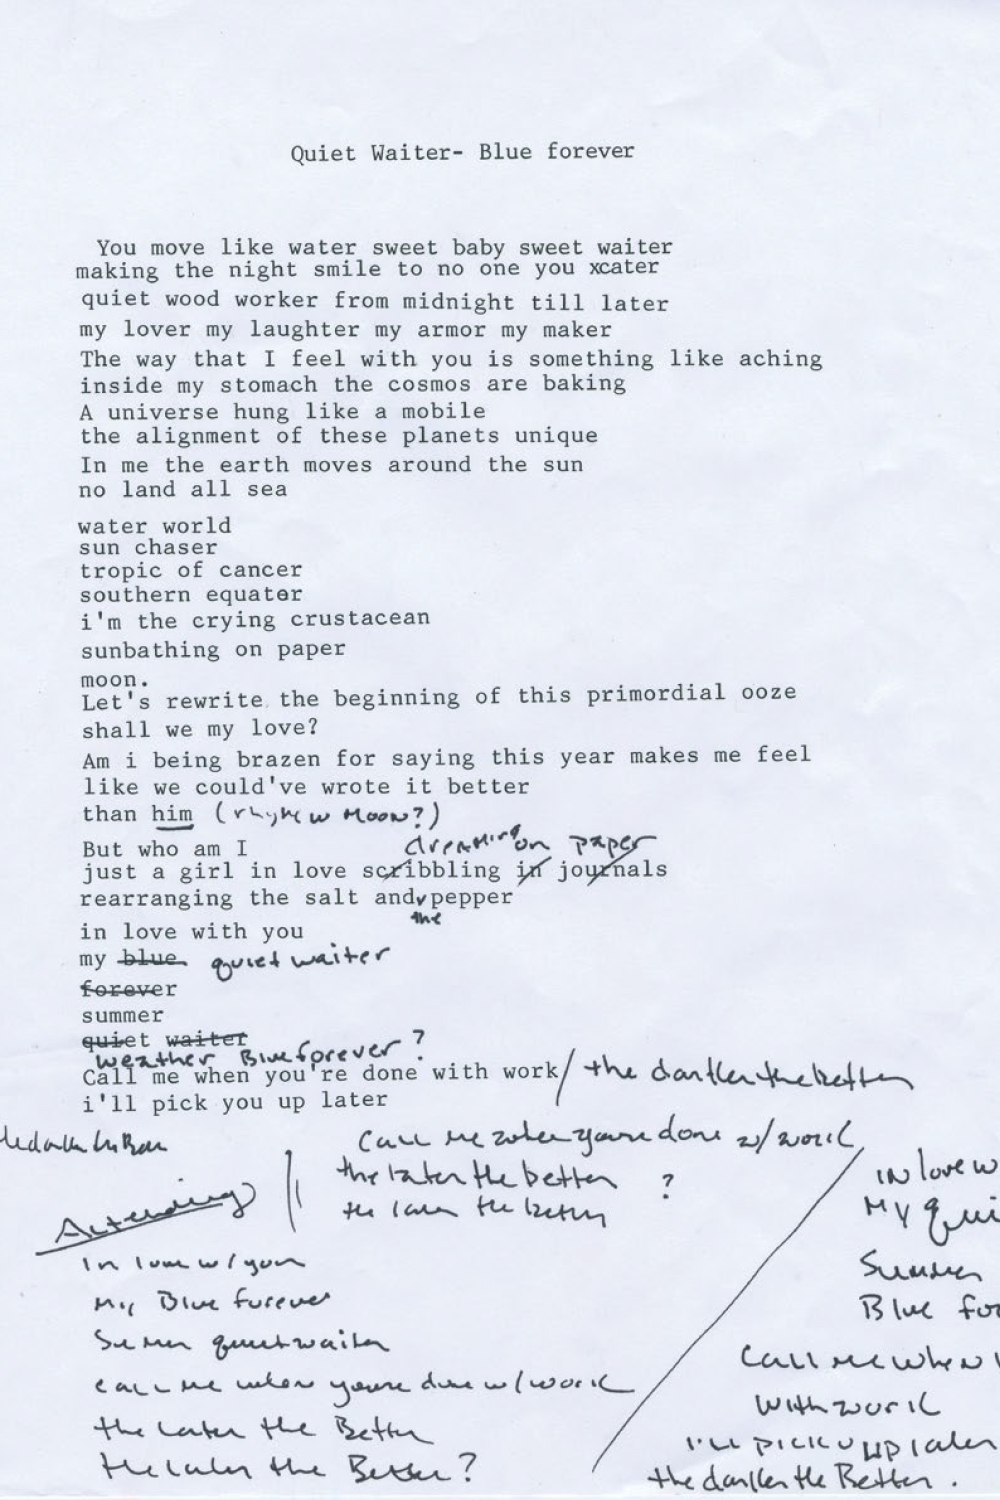 Quiet Waiter- Blue forever
You move like water sweet baby sweet waiter
making the night smile to no one you xcater
quiet wood worker from midnight till later
my lover my laughter my armor my maker
The way that I feel with you is something like aching
inside my stomach the cosmos are baking
A universe hung like a mobile
the alignment of these planets unique
In me the earth moves around the sun
no land all sea
water world
sun chaser
tropic of cancer
southern equator
i'm the crying crustacean
sunbathing on paper
moon.
Let's rewrite the beginning of this primordial ooze
shall we my love?
Am i being brazen for saying this year makes me feel
like we could've wrote it better
than him (rhyme w Moon?)
But who am I
dreaming on paper
just a girl in love scribbling in journals
rearranging the salt and pepper
the
in love with you
my blue quiet waiter
forever
summer
quiet waiter
weather Blue forever?
Call me when you're done with work/ the darker the better
i'll pick you up later
Call me when youre done w/ work
the later the better ?
the later the better
In love w
My Qui
Attending
In love w/ you
My Blue forever
Summer
Blue for
Summer quiet waiter
Call me when
call me when youre done w/ work
with work
the later the Better
I'll pick u up later
the later the Better?
the darker the Better.